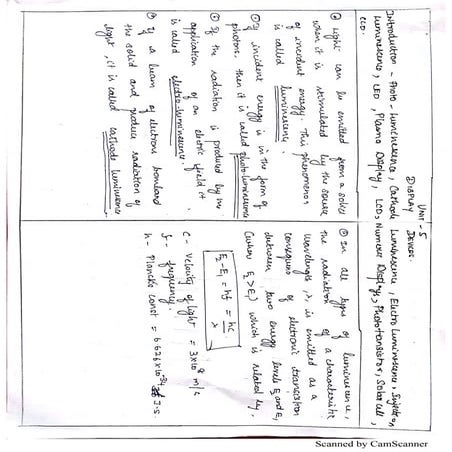 UNIT-5
DISPLAY DEVICES.
Introduction - Photo Luminescence, Cathode Luminescence, Electro Luminescence, Injection
Luminescence, LED, Plasma Display, LCD, Numeric Displays, Phototransistor, Solar cell,
CCD.
Light can be emitted from a solid
when it is stimulated by the source
of incident energy. This phenomenon
is called luminescence
If incident energy is in the form of
photons, then it is called photoluminescence
If the radiation is produced by
application of an electric field it
is called electro-luminescence.
If a beam of electrons bombard
the solid and produce radiation of
light, it is called cathodo luminescence
In all types of luminescence,
the radiation of a characteristic
wavelength λ, is emitted as a
consequence of electronic transition
between two energy levels E₂ and E₁
(where E₂ > E₁) which is related by,
E₂ - E₁ = hf = hc/λ
c - velocity of light = 3×10⁸ m/s
f - frequency.
h - Planck's const = 6.626×10⁻³⁴ J-s.
Scanned by CamScanner